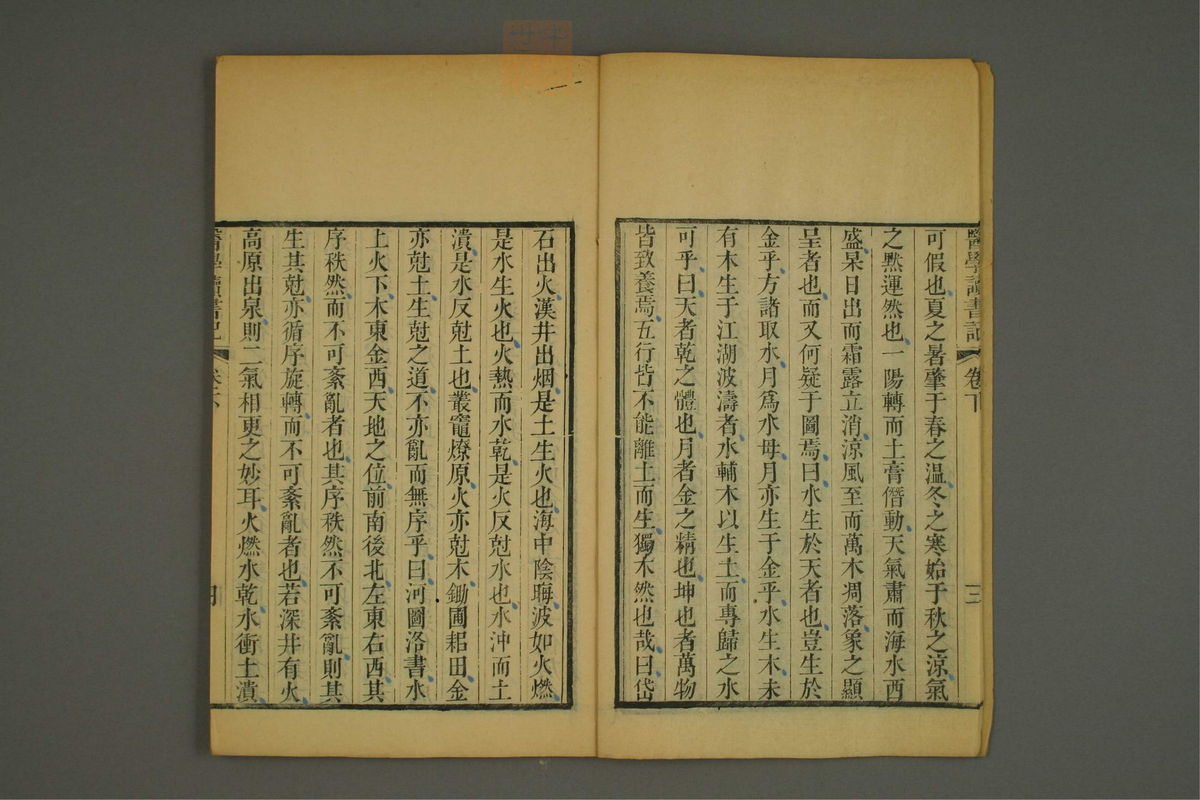 醫學讀書記 卷下 三
可假也夏之暑肇于春之温冬之寒始于秋之涼氣
之黙運然也一陽轉而土膏僭動天氣肅而海水西
盛杲日出而霜露立消涼風至而萬木凋落象之顯
呈者也而又何疑于圖焉曰水生於天者也豈生於
金乎方諸取水月爲水母月亦生于金乎水生木未
有木生于江湖波濤者水輔木以生土而專歸之水
可乎曰天者乾之體也月者金之精也坤也者萬物
皆致養焉五行皆不能離土而生獨木然也哉曰岱
石出火漢井出烟是土生火也海中陰晦波如火燃
是水生火也火熱而水乾是火反尅水也水沖而土
潰是水反尅土也叢竈燎原火亦尅木鋤圃耜田金
亦尅土生尅之道不亦亂而無序乎曰河圖洛書水
上火下木東金西天地之位前南後北左東右西其
序秩然而不可紊亂者也其序秩然不可紊亂則其
生其尅亦循序旋轉而不可紊亂者也若深井有火
高原出泉則二氣相更之妙耳火燃水乾水衝土潰
醫學讀書記 卷下